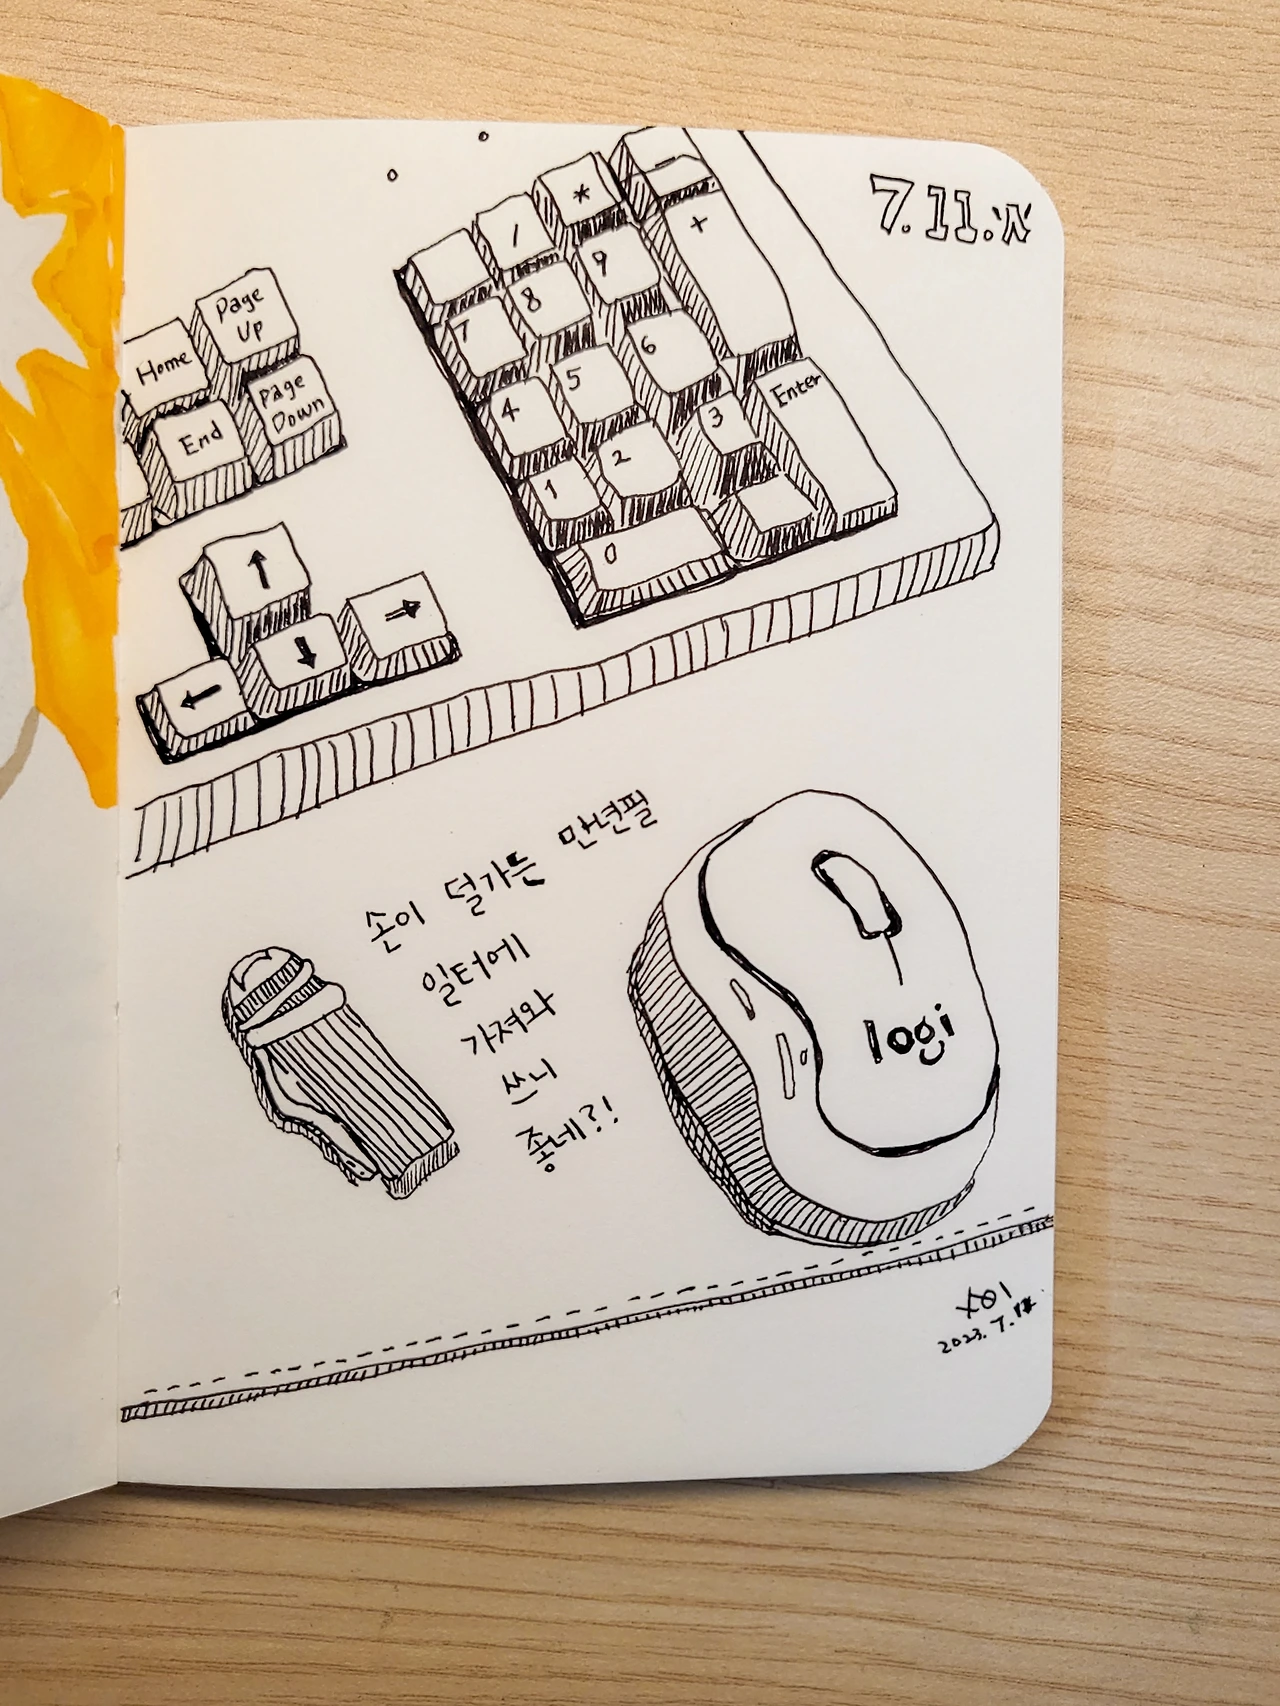 7.11.
*
/
-
+
9
8
7
6
5
4
3
2
1
0
Enter
Page
Up
Home
Page
Down
End
↑
←
↓
→
손이 덜가든 만년필
일터에
가져와
쓰니
좋네?!
logi
2023. 7.